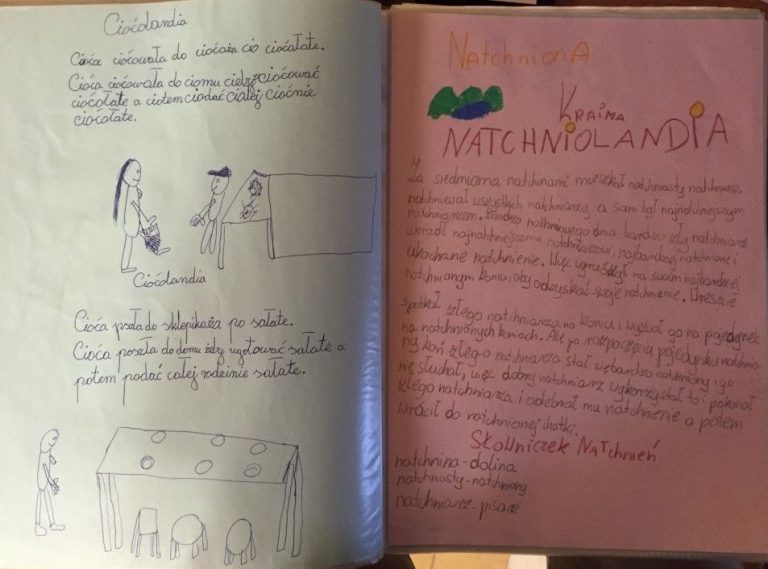 Cioćolandia
Cioća ciućowała do cioćaża cio ciocátate.
Cioća ciućowała do ciomu cieby ciućować
ciocólate a ciotem ciodać ciałej ciocńie
ciocólate.
Ciocólandia
Cioća poszła do sklepikaża po sałate.
Cioća poszła do domu żeby ugotować sałate a
potem podać całej rodzinie sałate.
NatchnionA
KRAiNA
NATCHNiOLANDiA
Za siedmioma natchinami mieszkał natchniasty natchniasz.
natchniewał wszystkich natchniarzy, a sam był najnatchniejszym
natchniarzem. Bardzo natchnionego dnia, bardzo zły natchniarz
ukradł najnatchniejszemu natchniaszowi, najbardziej natchnione i
ukochane natchnienie. Więc wyruszył na swoim najbardziej
natchnionym koniu, aby odzyskać swoje natchnienie. Wreszcie
spotkał złego natchniarza na koniu i wyzwał go na pojedynek
na natchnionych koniach. Ale po rozpoczęciu pojedynku natchnio
ny koń złego natchniarza stał się bardzo natchniony i go
nie słuchał, więc dobry natchniarz wykorzystał to i pokonał
złego natchniarza i odebrał mu natchnienie a potem
wrócił do natchnionej chatki.
Słowniczek Natchnień
natchnina - dolina
natchniasty - natchniony
natchniarz - pisarz